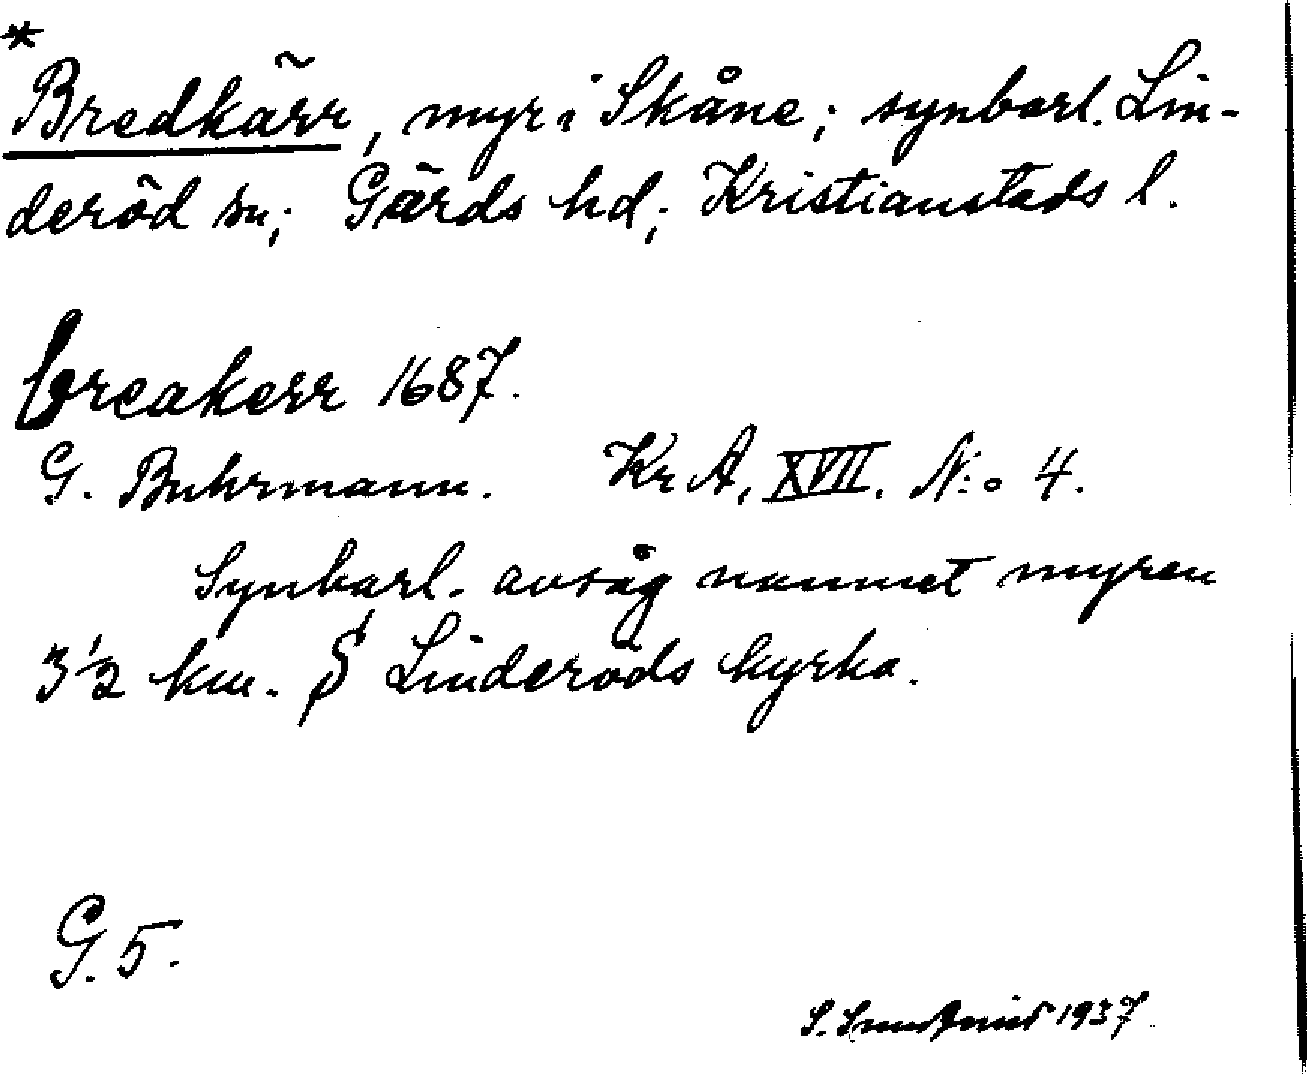 *
Bredkärr, myr i Skåne; synbarl. Lin-
deröd sn; Gärds hd; Kristianstads l.
breakerr 1687.
G. Buhrmann. Kr A, XVII. N:o 4.
Synbarl. avsåg namnet myren
3 1/2 km. S Linderöds kyrka.
G. 5.
S. 1937.